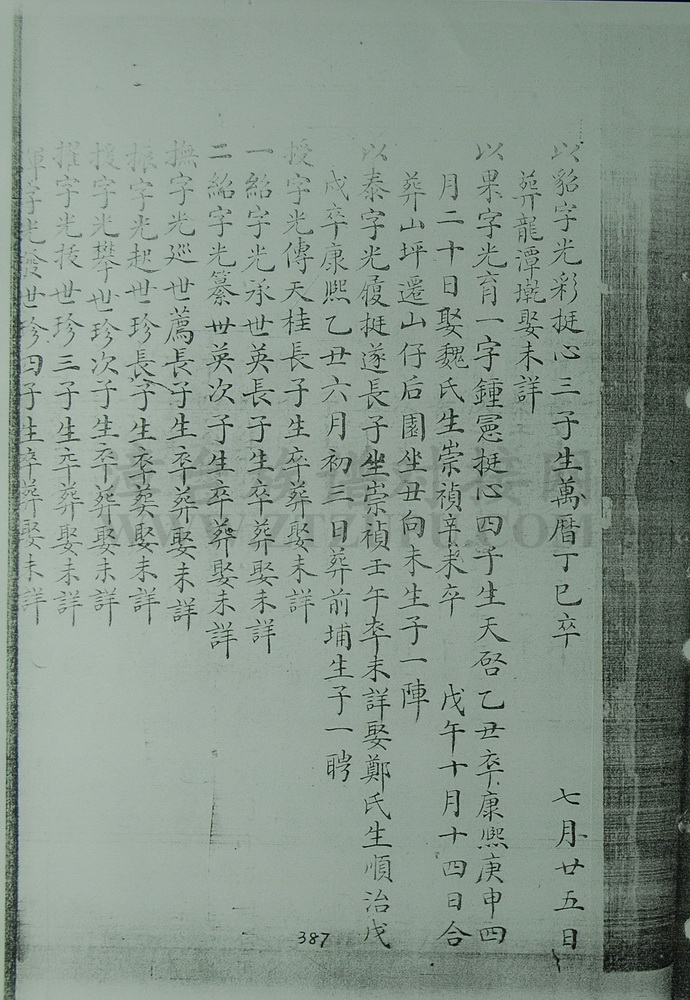 以貂字光彩挺心三子生萬曆丁巳卒 七月廿五日
葬龍潭墘娶未詳
以果字光育一字鍾憲挺心四子生天啓乙丑卒康熙庚申四
月二十日娶魏氏生崇禎辛未卒 戊午十月十四日合
葬山坪遷山仔后園坐丑向未生子一陣
以泰字光復挺遂長子坐崇禎壬午卒未詳娶鄭氏生順治戊
戌卒康熙乙丑六月初三日葬前埔生子一聘
授字光傳天桂長子生卒葬娶未詳
一紹字光承世英長子生卒葬娶未詳
二紹字光纂世英次子生卒葬娶未詳
撫字光巡世薦長子生卒葬娶未詳
振字光起世珍長子生卒葬娶未詳
字光攀世珍次子生卒葬娶未詳
擢字光拔世珍三子生卒葬娶未詳
字光發世珍四子生卒葬娶未詳
387